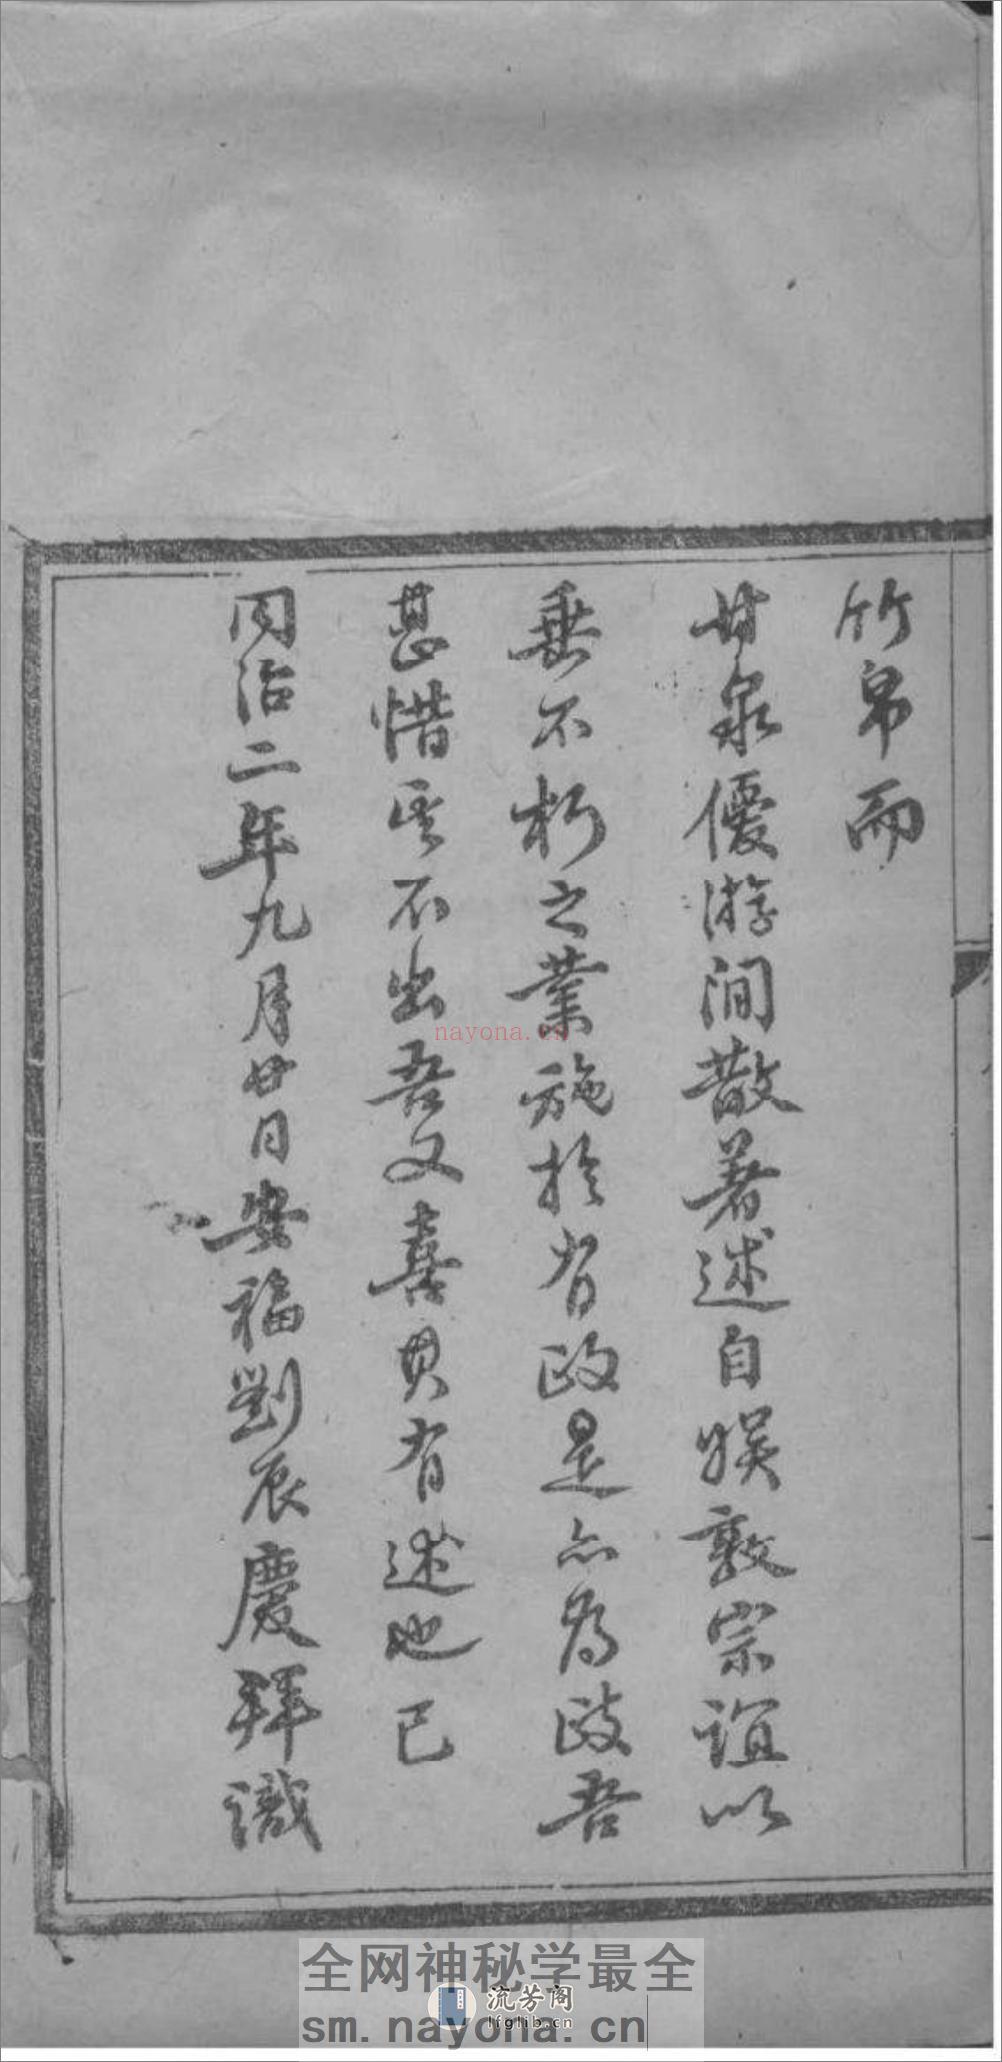 竹帛而
甘泉優游澗散著述自娛敦宗誼以
垂不朽之業施於有政是亦為政吾
甚惜其不出吾又喜其有述也已
同治二年九月廿日安福劉辰慶拜識
nayona.cn
全网神秘学最全
流芳阁
lfglib.cn
sm.nayona.cn